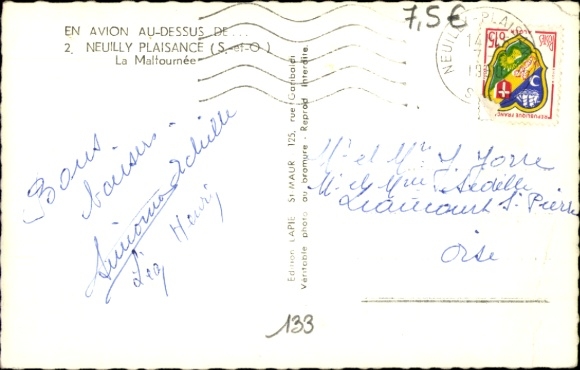 EN AVION AU-DESSUS DE...
2. NEUILLY PLAISANCE (S.-et-O.)
La Maltournée
7,5€
NEUILLY-PLAIS
14
7
0,15
REPUBLIQUE FRANCAISE
Bons
baisers
Simone Achille
Léa Henri
Edition LAPIE ST-MAUR 125, rue Garibaldi
Véritable photo au bromure - Reprod. interdite.
Mr et Mme
Mr et Mme Achille
Liancourt St Pierre
Oise
133